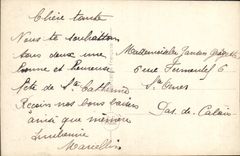 Chère tante
Nous te souhaitons
tous deux une
bonne et heureuse
fête de Ste Catherine
Reçois nos bons baisers
ainsi que mémère
Mademoiselle
6 rue 6
St Omer
Pas-de-Calais